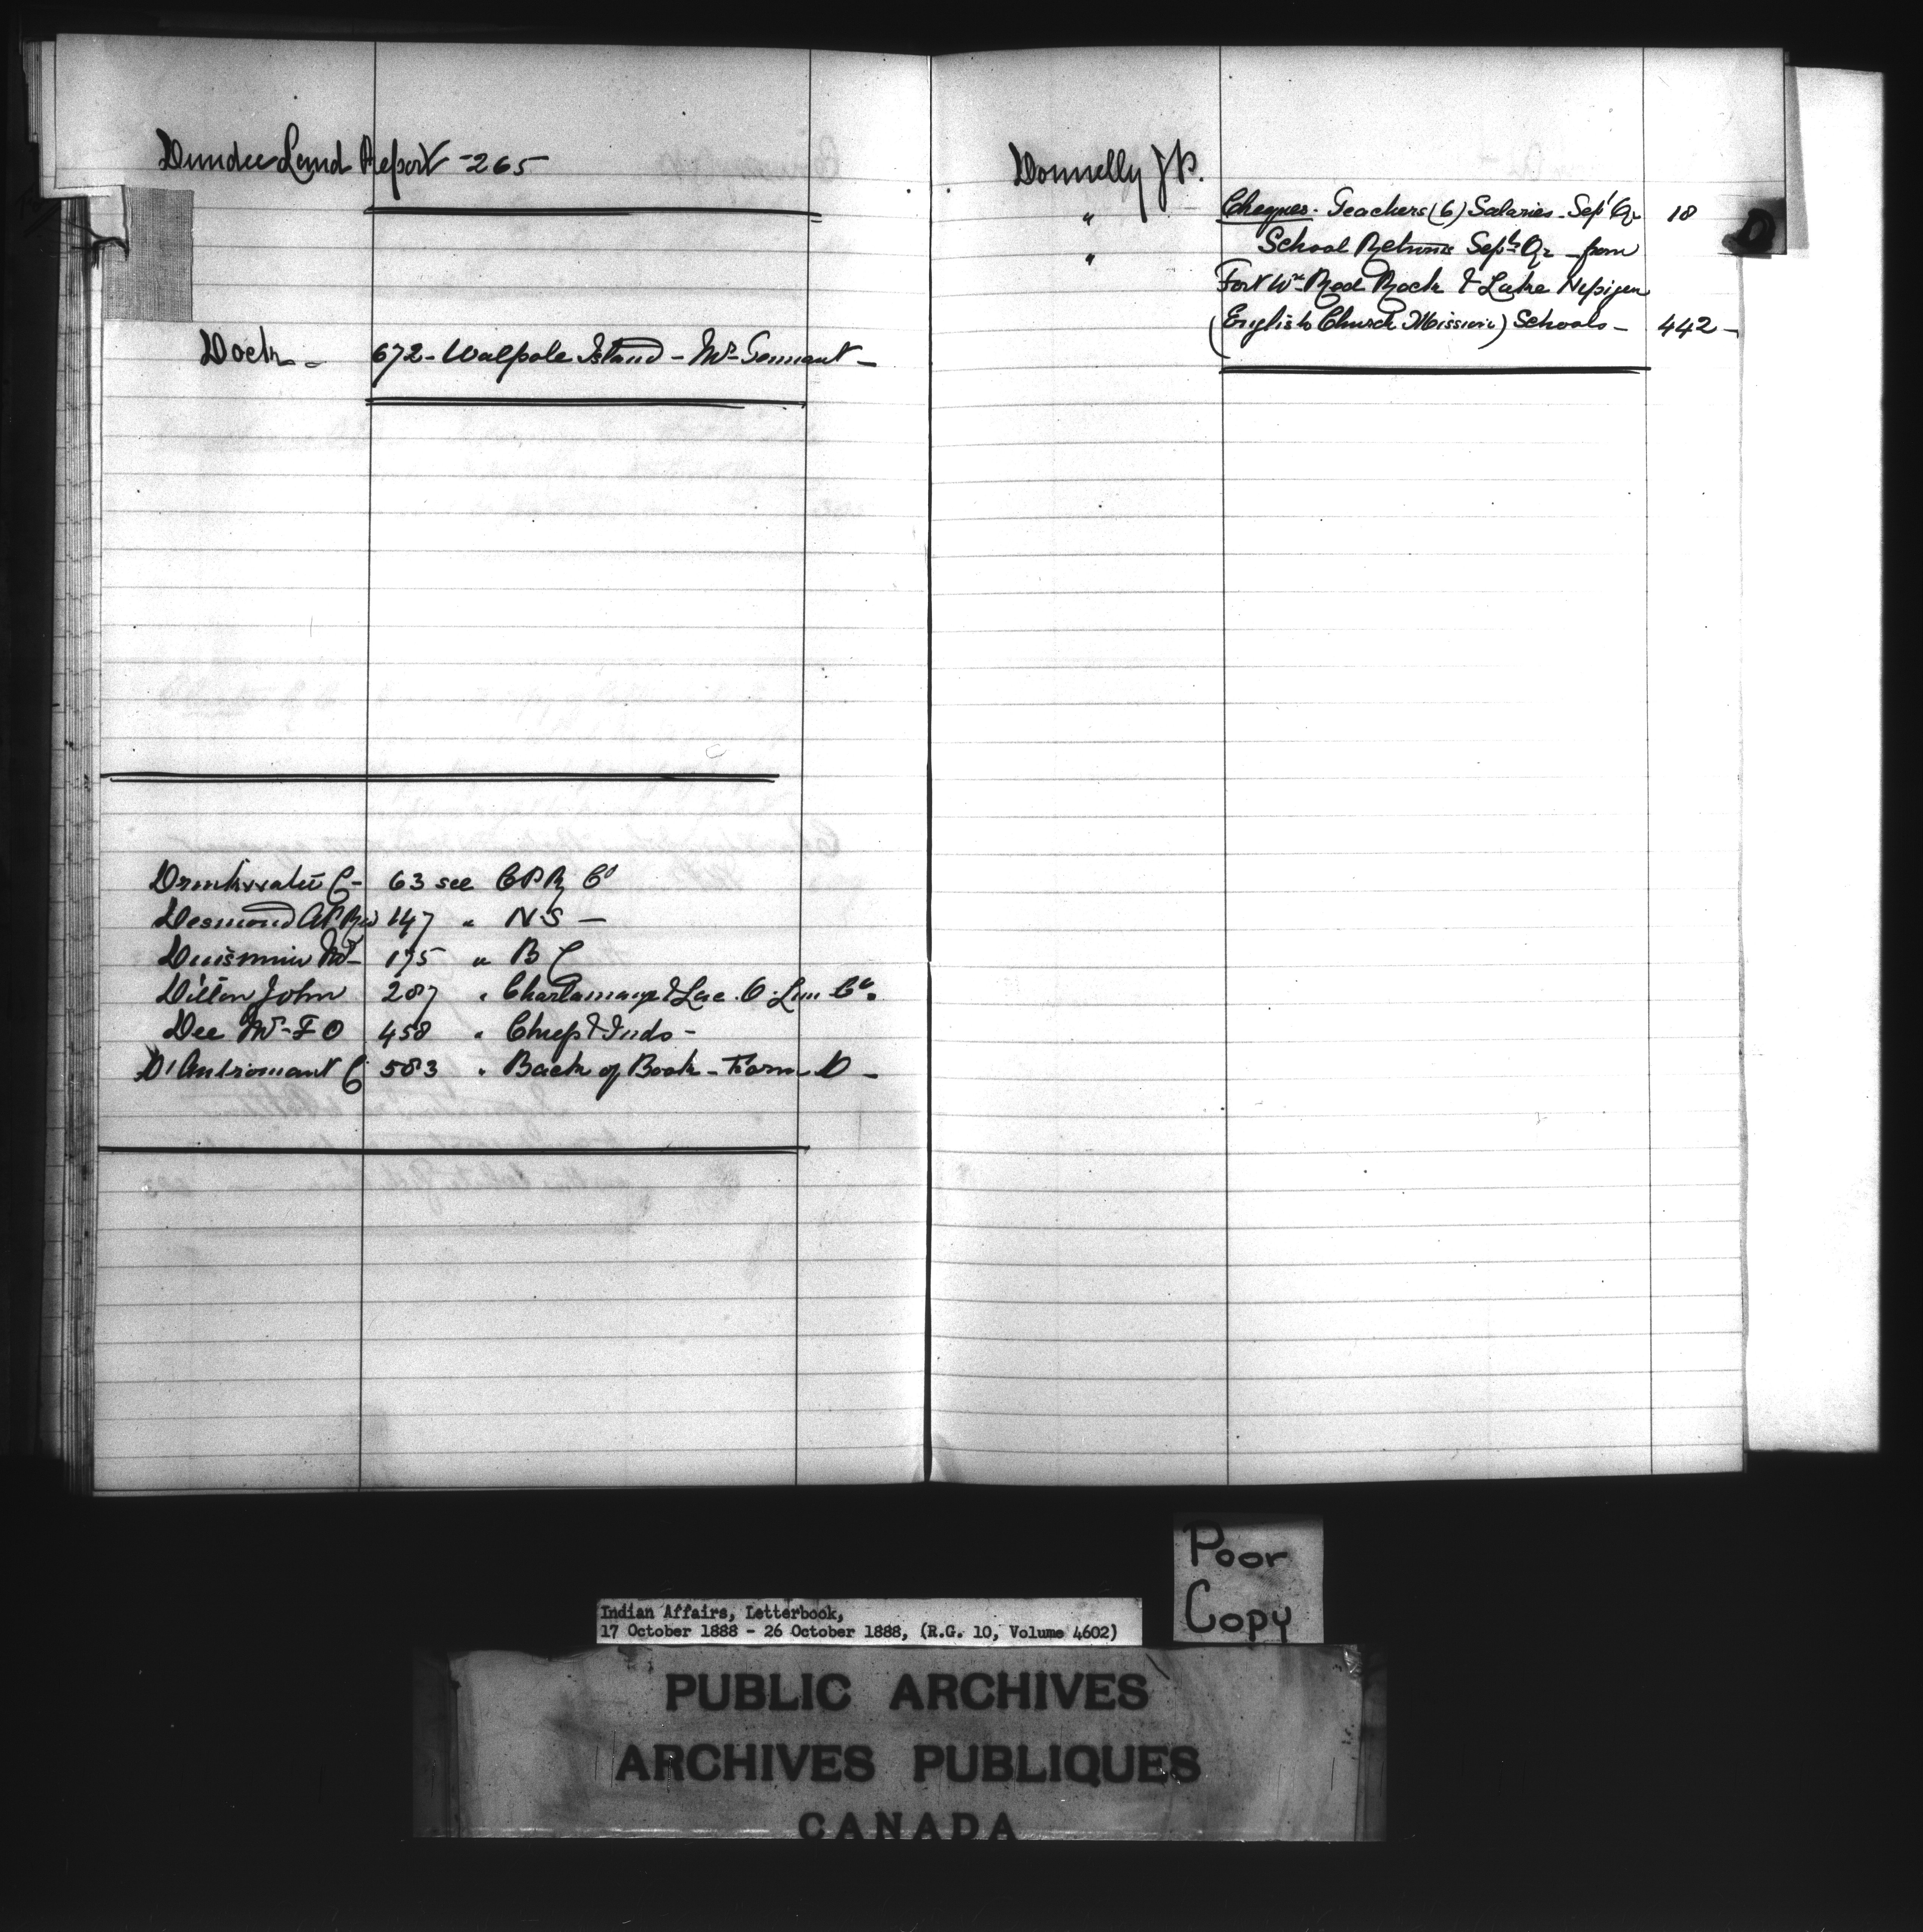 Dundee Land Report - 265
Dock - 672 - Walpole Island - Mr
Drinkwater C - 63 see C P R Co
Desmond A P Rev 147 " N S -
175 " B C
Dillon John 287 " & Lac. O. Co.
Dee Mr - F O 458 " Chiefs & Inds -
583 " Back of Book - Form D -
Donnelly J P.
" Cheques. Teachers (6) Salaries - Sept Qr 18
" School Returns Sept Qr - from
Fort Wm Red Rock & Lake Nepigon
(English Church Mission) Schools - 442 -
D
Poor
Copy
Indian Affairs, Letterbook,
17 October 1888 - 26 October 1888, (R.G. 10, Volume 4602)
PUBLIC ARCHIVES
ARCHIVES PUBLIQUES
CANADA